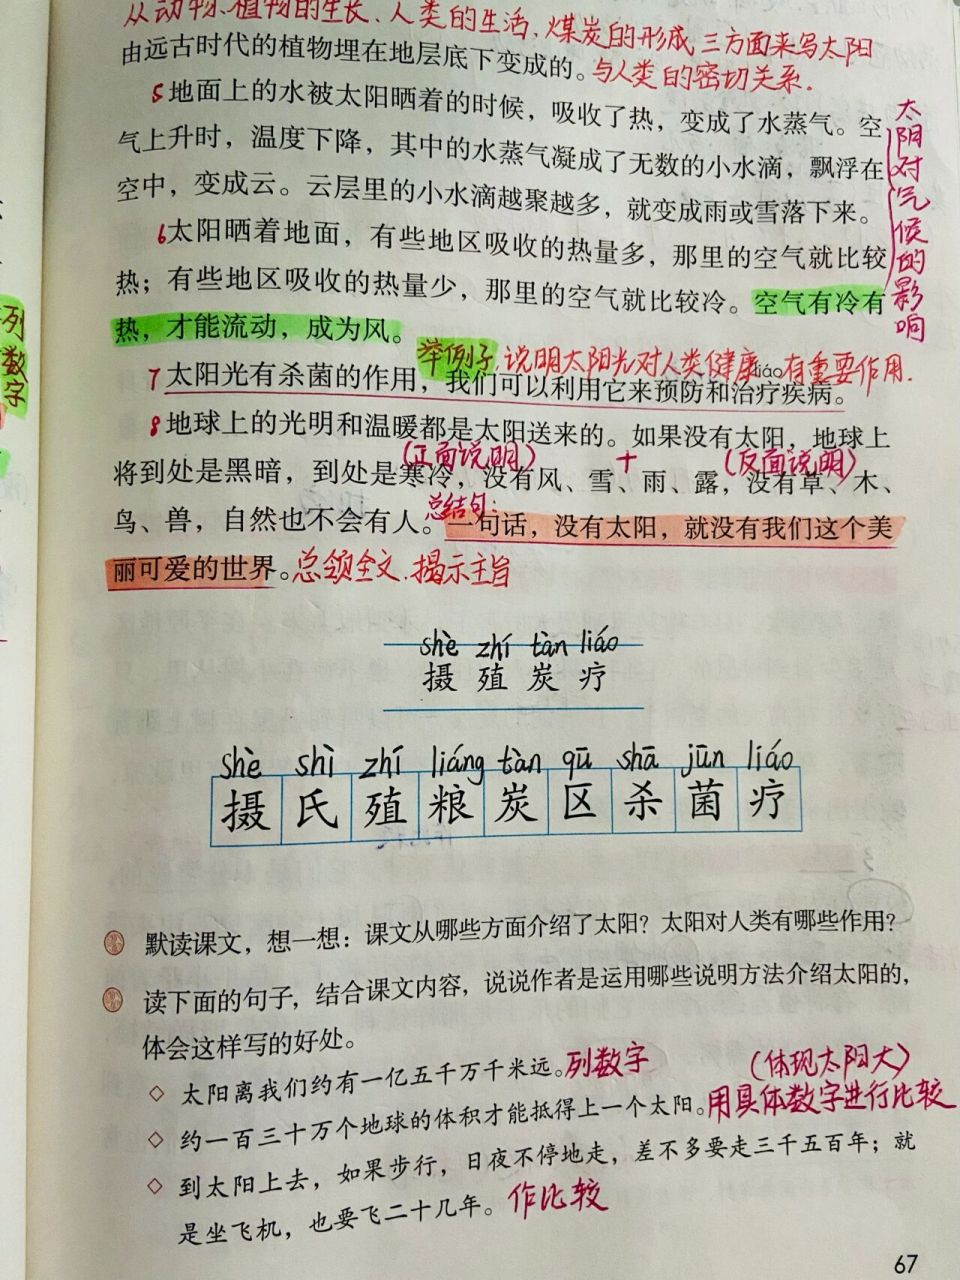 从动物、植物的生长、人类的生活,煤炭的形成三方面来写太阳
由远古时代的植物埋在地层底下变成的。与人类的密切关系.
5地面上的水被太阳晒着的时候，吸收了热，变成了水蒸气。空
气上升时，温度下降，其中的水蒸气凝成了无数的小水滴，飘浮在
空中，变成云。云层里的小水滴越聚越多，就变成雨或雪落下来。
太阳对气候的影响
6太阳晒着地面，有些地区吸收的热量多，那里的空气就比较
热；有些地区吸收的热量少，那里的空气就比较冷。空气有冷有
热，才能流动，成为风。
列数字
举例子,说明太阳光对人类健康有重要作用.
liáo
7太阳光有杀菌的作用，我们可以利用它来预防和治疗疾病。
8地球上的光明和温暖都是太阳送来的。如果没有太阳，地球上
(正面说明) + (反面说明)
将到处是黑暗，到处是寒冷，没有风、雪、雨、露，没有草、木、
总结句:
鸟、兽，自然也不会有人。一句话，没有太阳，就没有我们这个美
丽可爱的世界。总领全文.揭示主旨
shè zhí tàn liáo
摄 殖 炭 疗
shè shì zhí liáng tàn qū shā jūn liáo
摄 氏 殖 粮 炭 区 杀 菌 疗
默读课文，想一想：课文从哪些方面介绍了太阳？太阳对人类有哪些作用？
读下面的句子，结合课文内容，说说作者是运用哪些说明方法介绍太阳的，
体会这样写的好处。
◇ 太阳离我们约有一亿五千万千米远。列数字
(体现太阳大)
◇ 约一百三十万个地球的体积才能抵得上一个太阳。用具体数字进行比较
◇ 到太阳上去，如果步行，日夜不停地走，差不多要走三千五百年；就
是坐飞机，也要飞二十几年。作比较
67